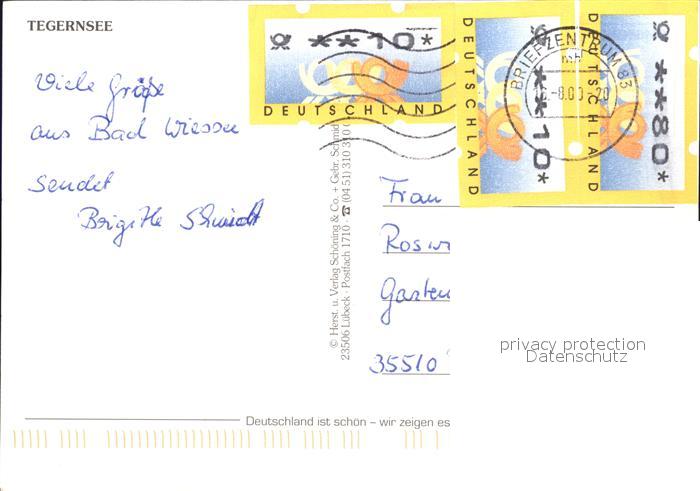 TEGERNSEE
**10*
DEUTSCHLAND
DEUTSCHLAND
**10*
DEUTSCHLAND
**80*
BRIEFZENTRUM 83
Viele Grüße
aus Bad Wiessee
sendet
Brigitte Schmidt
© Herst. u. Verlag Schöning & Co. + Gebr. Schmidt
23506 Lübeck · Postfach 1710 · ☎ (04 51) 310 310
Frau
Garten
35510
privacy protection
Datenschutz
Deutschland ist schön – wir zeigen es